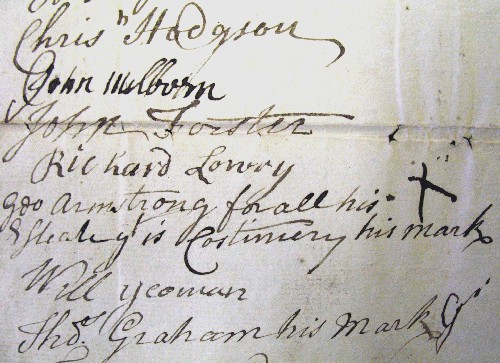 Chrisn Hodgson
John Milborn
John Forster
Richard Lowry
Geo Armstrong for all his X
yt is Costimery his mark
Will yeoman
Tho.s Graham his Mark G